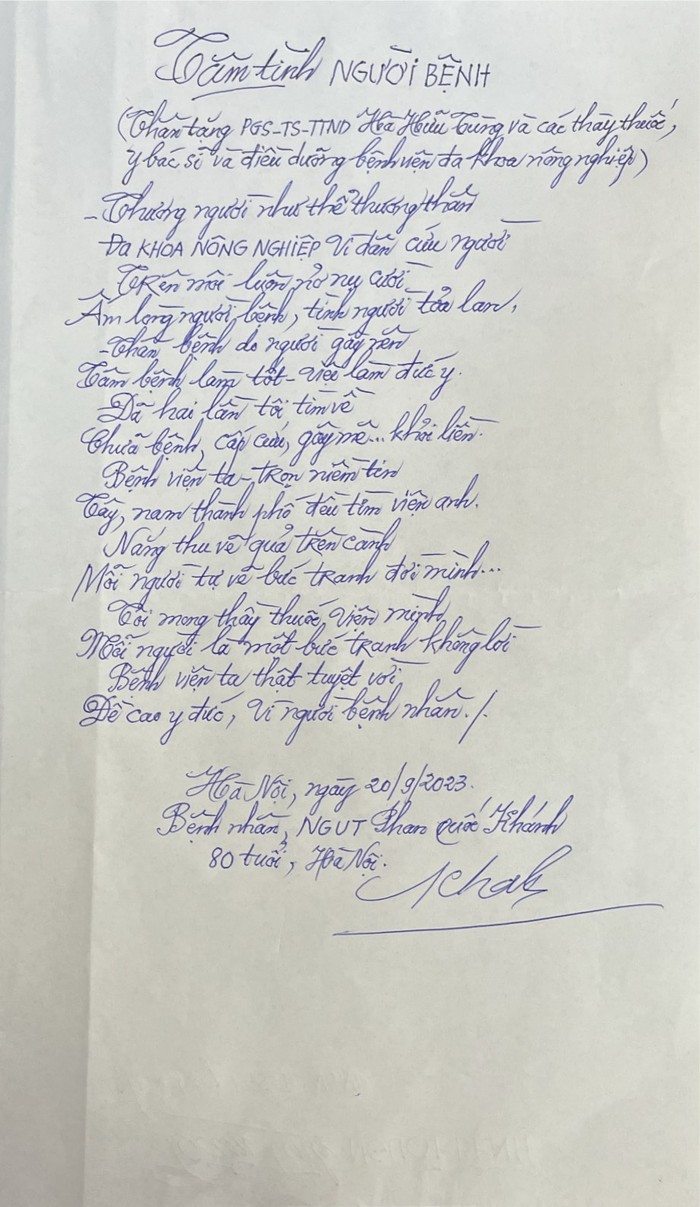 Tâm tình NGƯỜI BỆNH
(Thân tặng PGS-TS-TTND Hà Hữu Tùng và các thầy thuốc,
y bác sĩ và điều dưỡng bệnh viện đa khoa nông nghiệp)
- Thương người như thể thương thân
Đa KHOA NÔNG NGHIỆP Vì dân cứu người
Trên môi luôn nở nụ cười
Ấm lòng người bệnh, tình người tỏa lan.
- Thân bệnh do người gây nên
Tâm bệnh làm tốt - việc làm đức y.
Đã hai lần tôi tìm về
Chữa bệnh, cấp cứu, gây mê... khỏi liền.
Bệnh viện ta - trọn niềm tin
Tây, nam thành phố đều tìm viện anh.
Nắng thu về quả trên cành
Mỗi người tự vẽ bức tranh đời mình...
Tôi mong thầy thuốc Viện mình
Mỗi người là một bức tranh không lời
Bệnh viện ta thật tuyệt vời
Đề cao y đức, Vì người bệnh nhân./.
Hà Nội, ngày 20/9/2023.
Bệnh nhân, NGUT Phan Quốc Khánh
80 tuổi, Hà Nội.
Khah